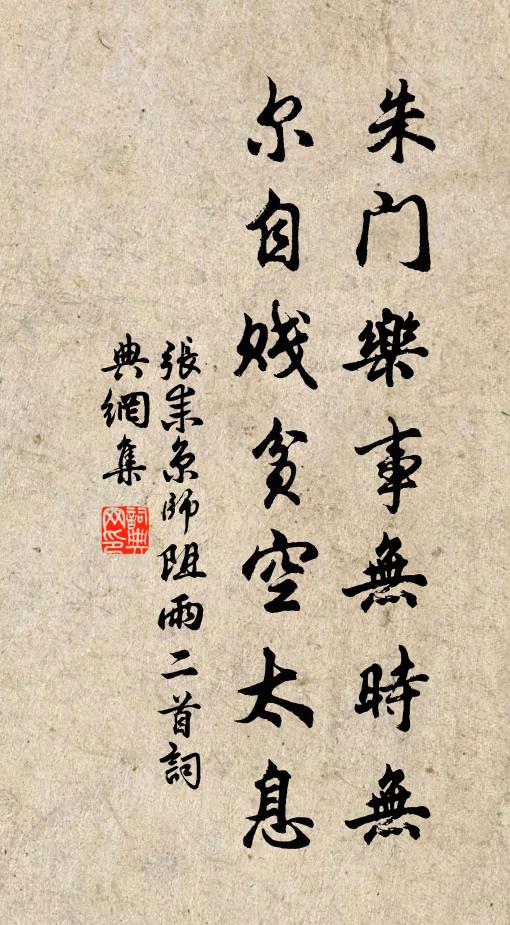 朱门樂事無時無
尔自贱貧空太息
張耒京師阻雨二首詞
典網集
詞典
网印